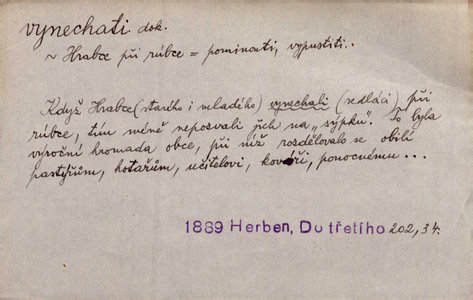 vynechati dok.
~ Hrabce při rúbce = pominouti, vypustiti.
Když Hrabce (starého i mladého) vynechali (sedláci) při
rúbce, tím méně nepozvali jich na „sýpku". To byla
výroční hromada obce, při níž rozdělovalo se obilí
pastýřům, hotařům, učitelovi, kováři, ponocnému ...
1889 Herben, Do třetího 202, 34.